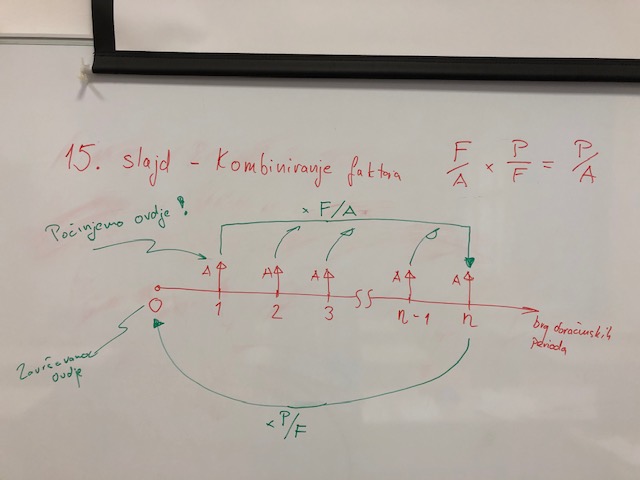 15. slajd - Kombiniranje faktora F/A × P/F = P/A
× F/A
Počinjemo ovdje!
A A A A A
0 1 2 3 n-1 n
broj obračunskih
perioda
Završavamo
ovdje
× P/F